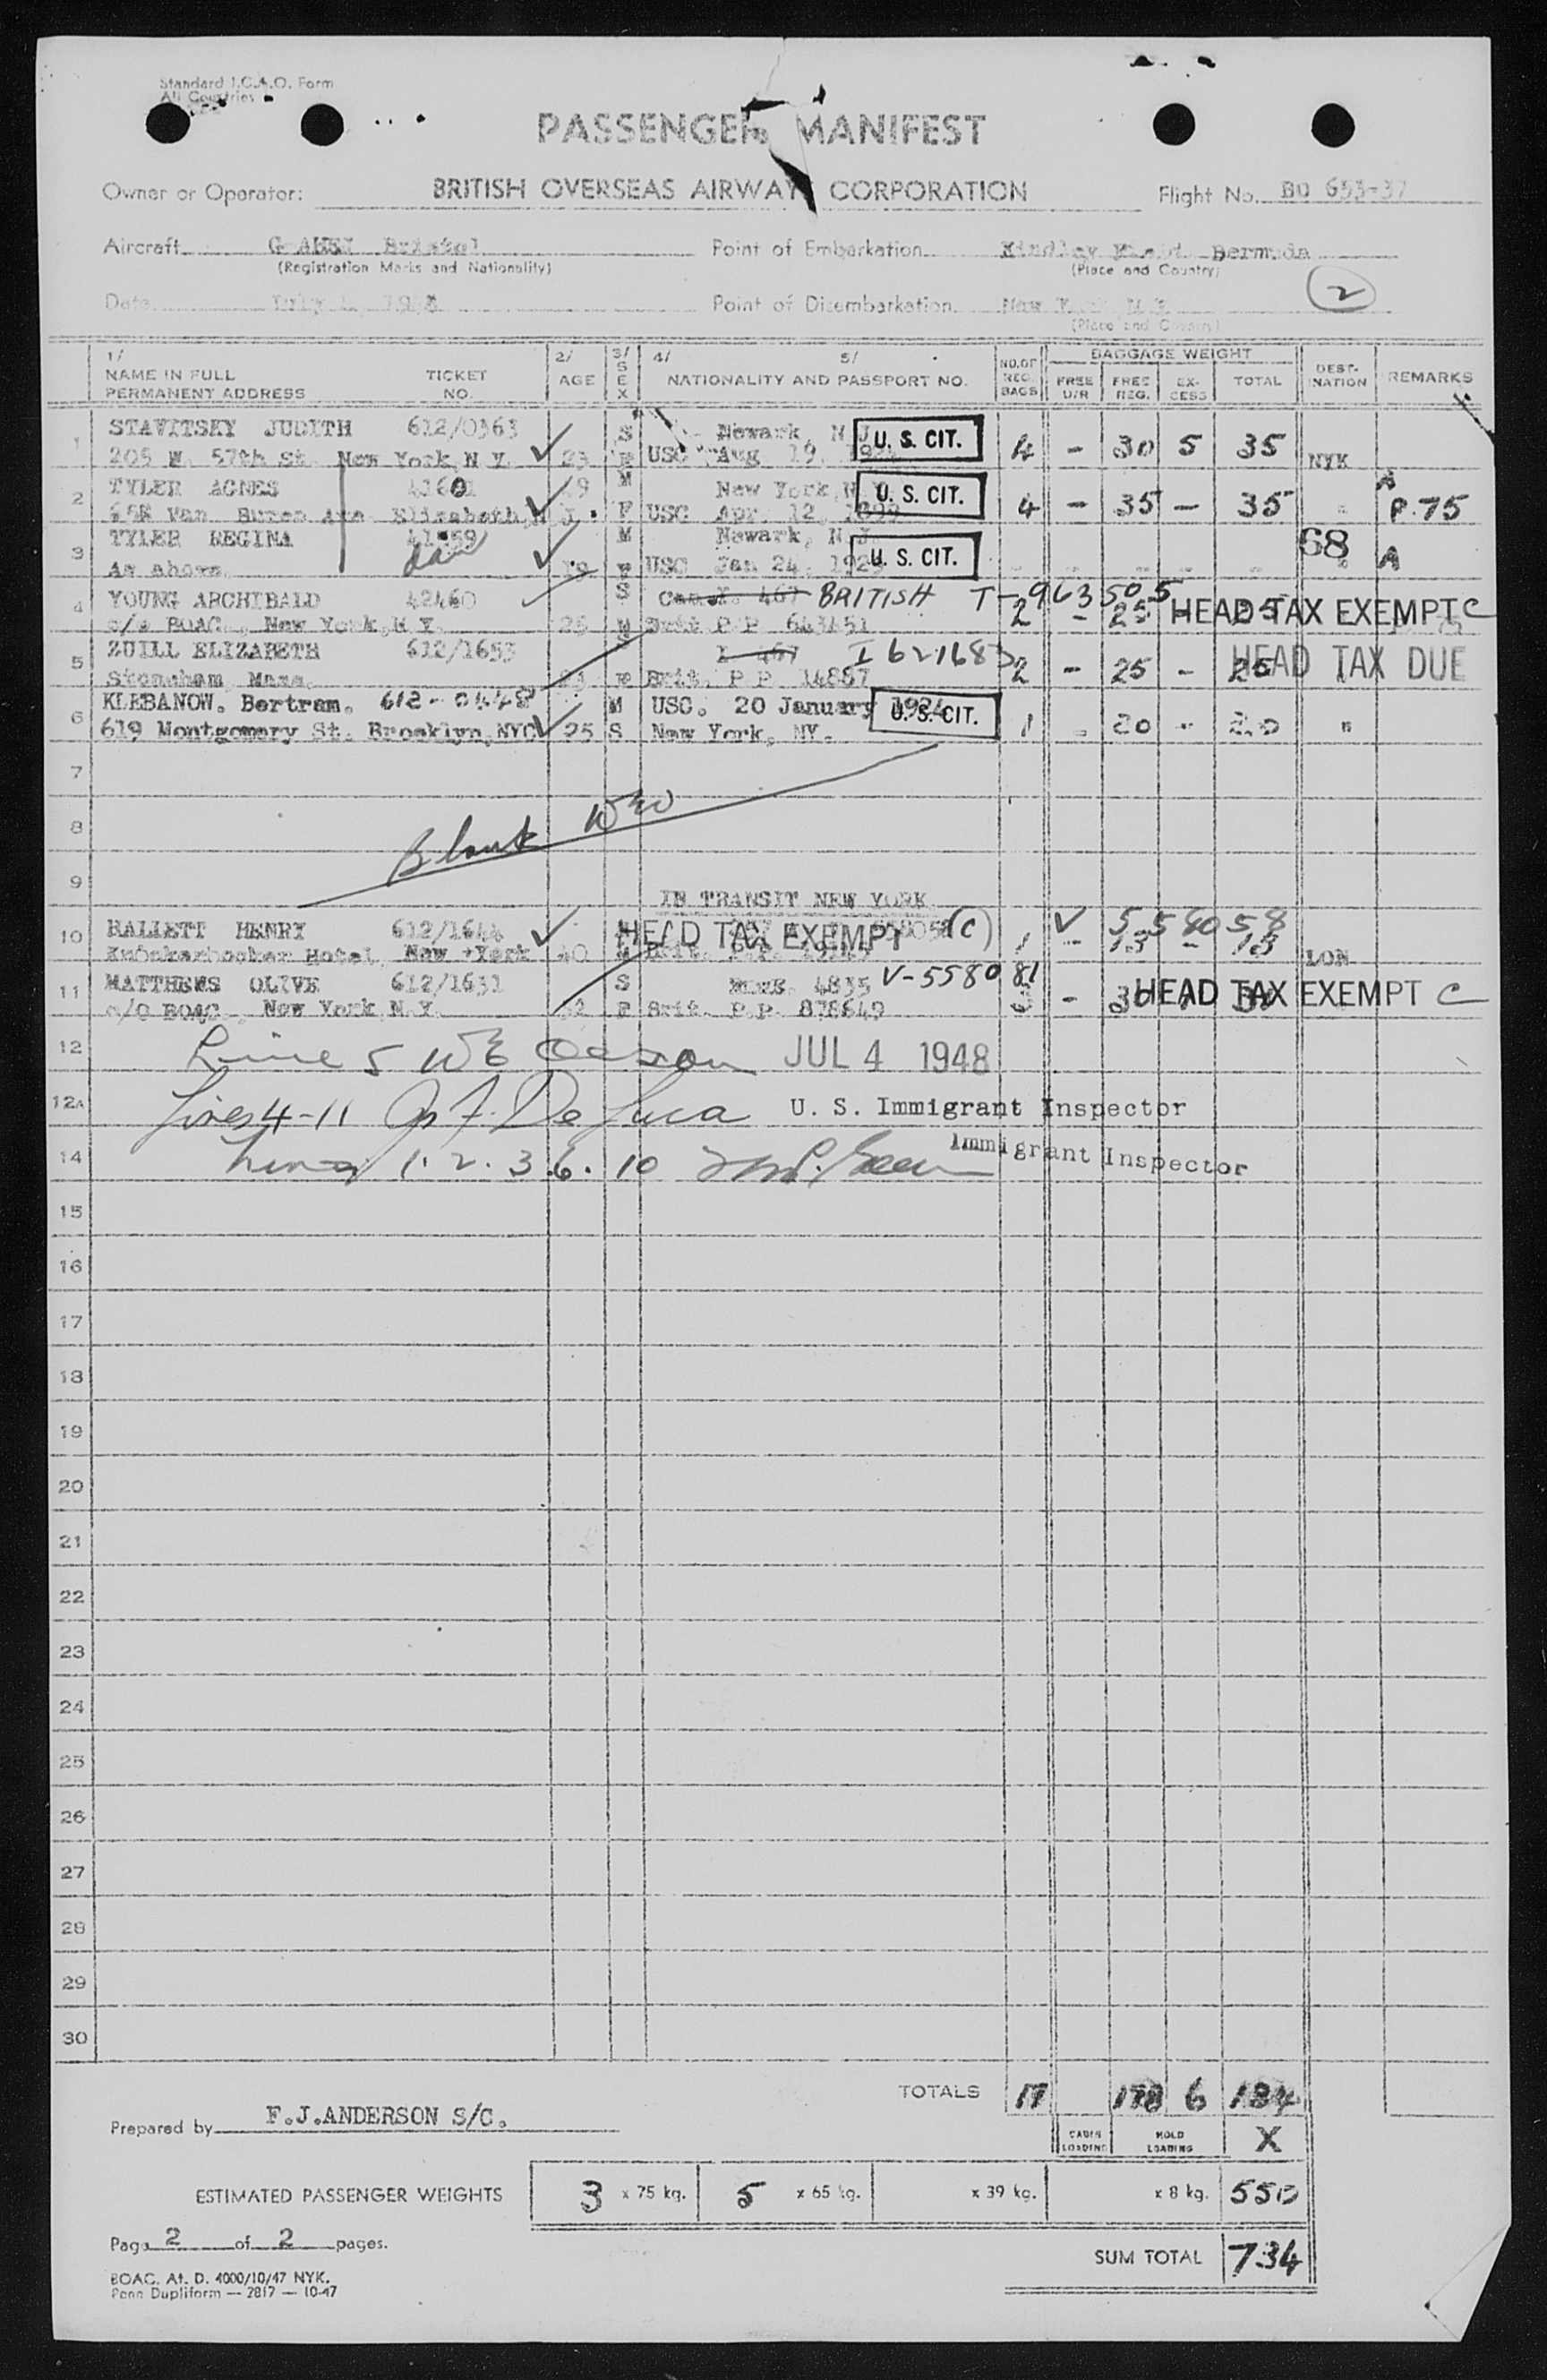 Standard I.C.A.O. Form
All Countries
PASSENGER MANIFEST
Owner or Operator: BRITISH OVERSEAS AIRWAYS CORPORATION Flight No. BO 653-37
Aircraft Bristol Point of Embarkation Kindley Field Bermuda
(Registration Marks and Nationality) (Place and Country)
2
Date July 1948 Point of Disembarkation New
(Place and Country)
1/ 2/ 3/ 4/ 5/ NO. OF BAGGAGE WEIGHT DEST-
NAME IN FULL TICKET AGE SEX NATIONALITY AND PASSPORT NO. REG. FREE FREE EX- TOTAL INATION REMARKS
PERMANENT ADDRESS NO. BAGS U/R REG. CESS
1 STAVITSKY JUDITH 612/0363 S Newark, N.J. U. S. CIT. 4 - 30 5 35
205 W. 57th St. New York, N.Y. 23 F USC Aug 19, NYK
2 TYLER AGNES 41601 49 M New York, N.Y. U. S. CIT. A
Van Buren Ave Elizabeth, N.J. F USC Apr. 12, 1899 4 - 35 - 35 " P.75
3 TYLER REGINA 41559 M Newark, N.J. U. S. CIT. 68 A
As above. 19 F USC Jan 24, 1929 - - - - -
4 YOUNG ARCHIBALD 42460 S Can. I. 467 BRITISH T-963505
c/o BOAC., New York, N.Y. 25 M Brit P.P. 643451 2 - 25 - 25 HEAD TAX EXEMPT C
5 ZUILL ELIZABETH 612/1653 S I-467 I 621683 HEAD TAX DUE
Stoneham Mass. 23 F Brit. P.P. 14867 2 - 25 - 25
6 KLEBANOW. Bertram. 612-0448 M USC. 20 January 1924 U. S. CIT.
619 Montgomery St. Brooklyn, NYC 25 S New York, NY. 1 - 20 - 20 "
7
8 Blank
9
IN TRANSIT NEW YORK
10 HALLETT HENRY 612/1644 HEAD TAX EXEMPT (C) V 558058
Knickerbocker Hotel, New York 40 M Brit. P.P. 1 - 13 - 13 LON
11 MATTHEWS OLIVE 612/1631 S 4835 V-558081 HEAD TAX EXEMPT C
c/o BOAC., New York, N.Y. 32 F Brit. P.P. 878649 3 - 30
12 Line 5 JUL 4 1948
12A Lines 4-11 De Luca U. S. Immigrant Inspector
14 Lines 1. 2. 3. 6. 10 Immigrant Inspector
15
16
17
18
19
20
21
22
23
24
25
26
27
28
29
30
TOTALS 17 178 6 184
Prepared by F.J.ANDERSON S/C.
CABIN LOADING HOLD LOADING X
ESTIMATED PASSENGER WEIGHTS 3 x 75 kg. 5 x 65 kg. x 39 kg. x 8 kg. 550
Page 2 of 2 pages.
SUM TOTAL 734
BOAC. At. D. 4000/10/47 NYK.
Penn Dupliform — 2817 — 10-47